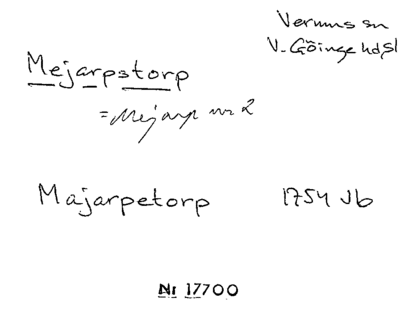 Verums sn
V. Göinge hd, Sl
Mejarpstorp
= Mejarp nr 2
Majarpetorp 1754 Jb
Nr 17700